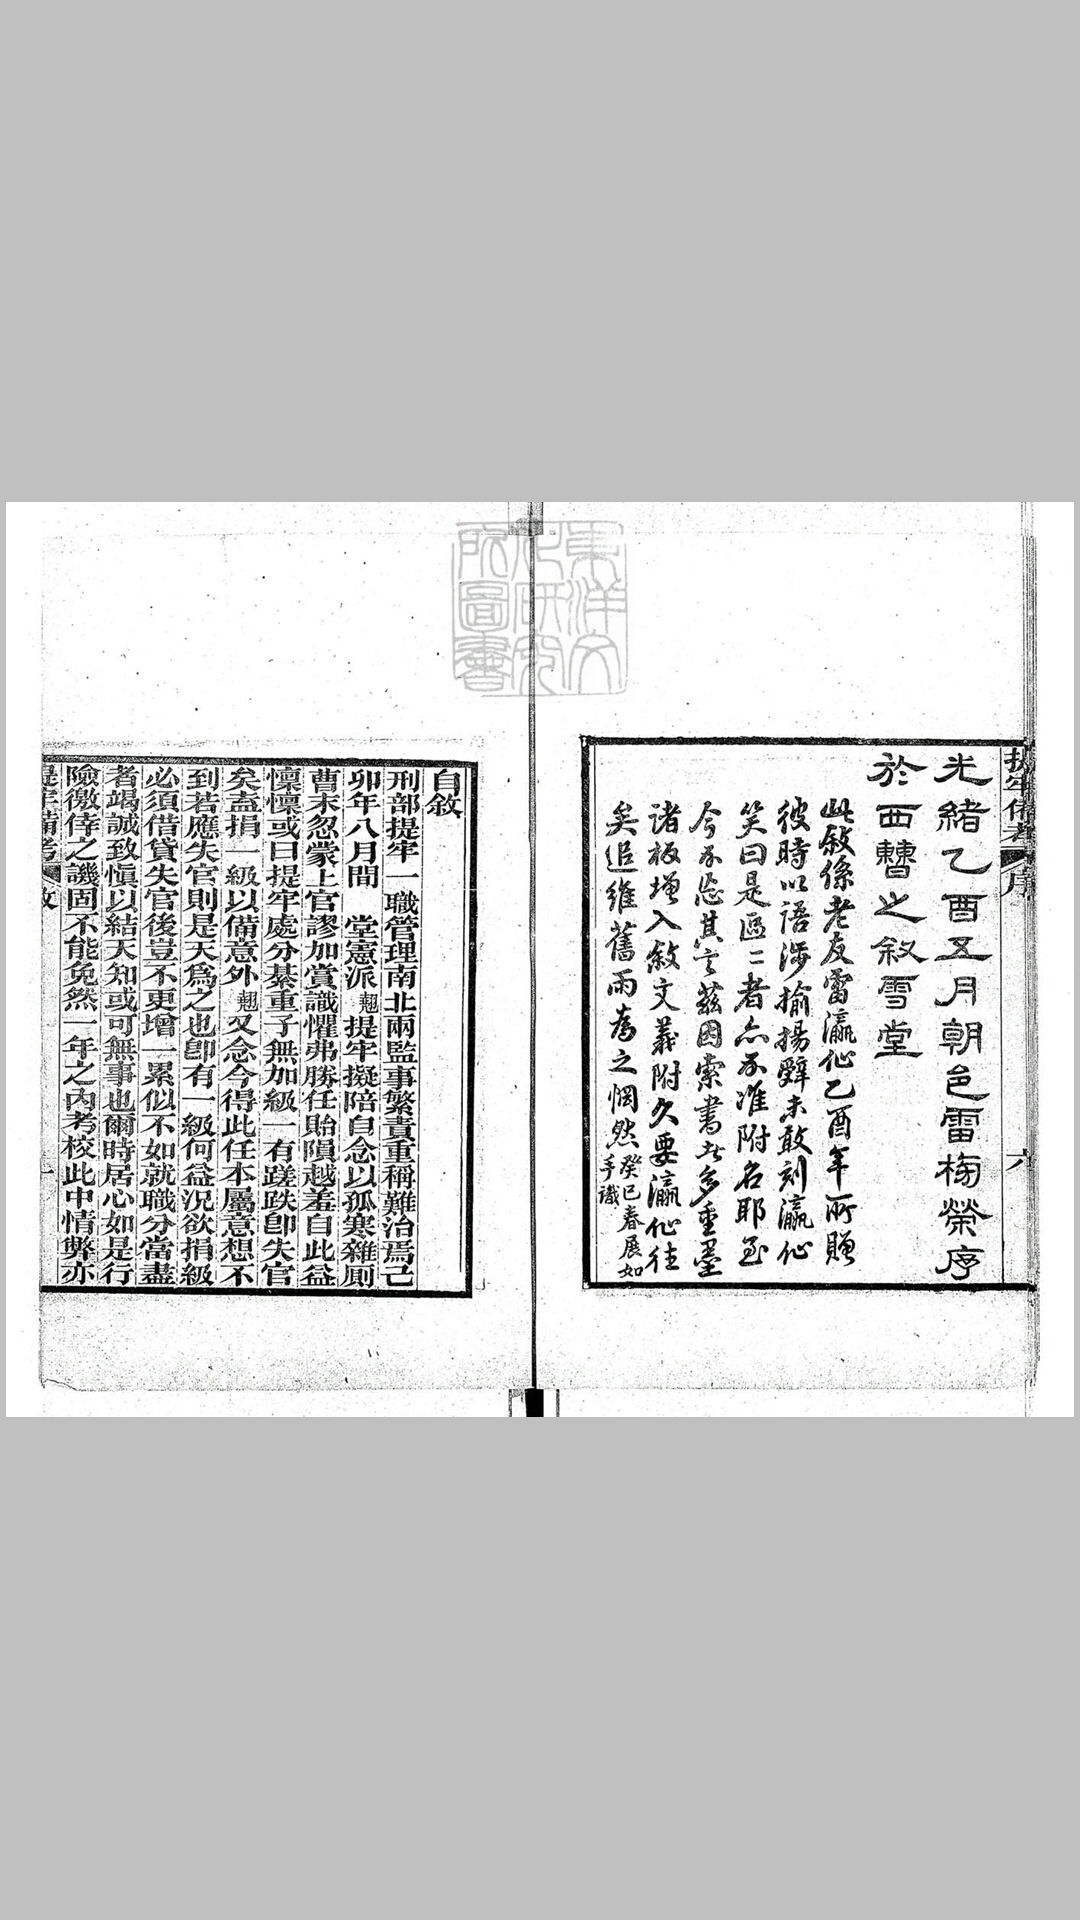 提牢備考
序
六
光緒乙酉五月朝邑雷榜榮序
於西曹之敘雪堂
此敘係老友雷瀛仙乙酉年所贈
彼時以語涉揄揚辭未敢刻瀛仙
笑曰是區區者亦不准附名耶至
今不忘其言茲因索書者多重墨
諸板增入敘文義附久要瀛仙往
矣追維舊雨為之惘然癸巳春展如
手識
自敘
刑部提牢一職管理南北兩監事繁責重稱難治焉己
卯年八月間 堂憲派翹提牢擬陪自念以孤寒雜厠
曹末忽蒙上官謬加賞識懼弗勝任貽隕越羞自此益
懍懍或曰提牢處分綦重子無加級一有蹉跌卽失官
矣盍捐一級以備意外翹又念今得此任本屬意想不
到若應失官則是天爲之也卽有一級何益況欲捐級
必須借貸失官後豈不更增一累似不如就職分當盡
者竭誠致愼以結天知或可無事也爾時居心如是行
險徼倖之譏固不能免然一年之內考校此中情弊亦
提牢備考
敘
一
東洋文化研究所圖書